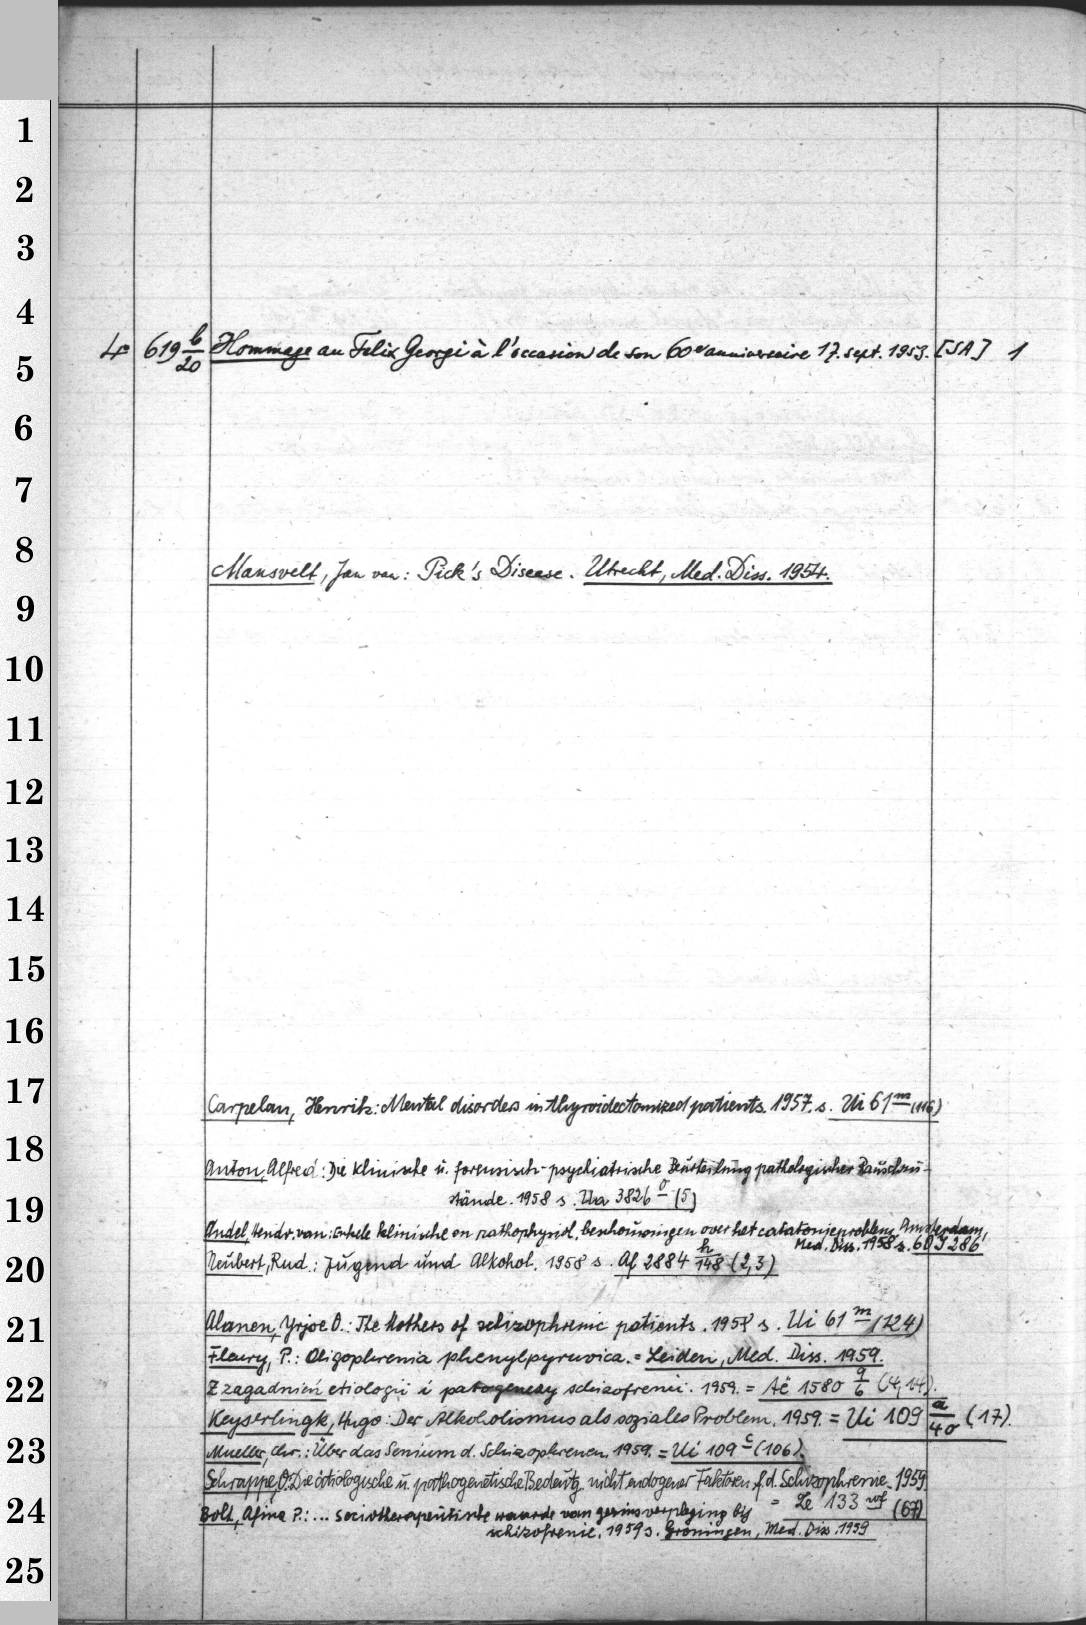 1
2
3
4
4° 619 b/20 Hommage au Felix Georgi à l'occasion de son 60e anniversaire 17. sept. 1953. [SA] 1
5
6
7
8
Mansvelt, Jan van: Pick's Disease. Utrecht, Med. Diss. 1954.
9
10
11
12
13
14
15
16
17
Carpelan, Henrik: Mental disordes in thyroidectomized patients. 1957. s. Ui 61 m (116)
18
Anton, Alfred: Die klinische u. forensisch-psychiatrische Beurteilung pathologischer Rauschzu-
stände. 1958 s. Ua 3826 o (5)
19
Andel, Hendr. van: Enkele klinische en pathophysiol. beschouwingen over het catatonieprobleem, Amsterdam,
Med. Diss. 1958 s. 60 J 286
20
Neubert, Rud.: Jugend und Alkohol. 1958 s. Af 2884 h/148 (2,3)
21
Alanen, Yrjoe O.: The Mothers of schizophrenic patients. 1958 s. Ui 61 m (124)
Fleury, P.: Oligophrenia phenylpyruvica. = Leiden, Med. Diss. 1959.
22
Z zagadnień etiologii i patogenezy schizofrenii. 1959. = Ac 1580 9/6 (4,14).
Keyserlingk, Hugo: Der Alkoholismus als soziales Problem. 1959. = Ui 109 a/40 (17).
23
Mueller, Chr.: Über das Senium d. Schizophrenen. 1959. = Ui 109 c (106).
Schrappe, O: Die ätiologische u. pathogenetische Bedeutg. nicht endogener Faktoren f. d. Schizophrenie. 1959
24
= Le 133 wf (67)
Bolt, Afina P.: ... sociotherapeutische waarde van gezinsverpleging bij
schizofrenie. 1959 s. Groningen, Med. Diss. 1959
25